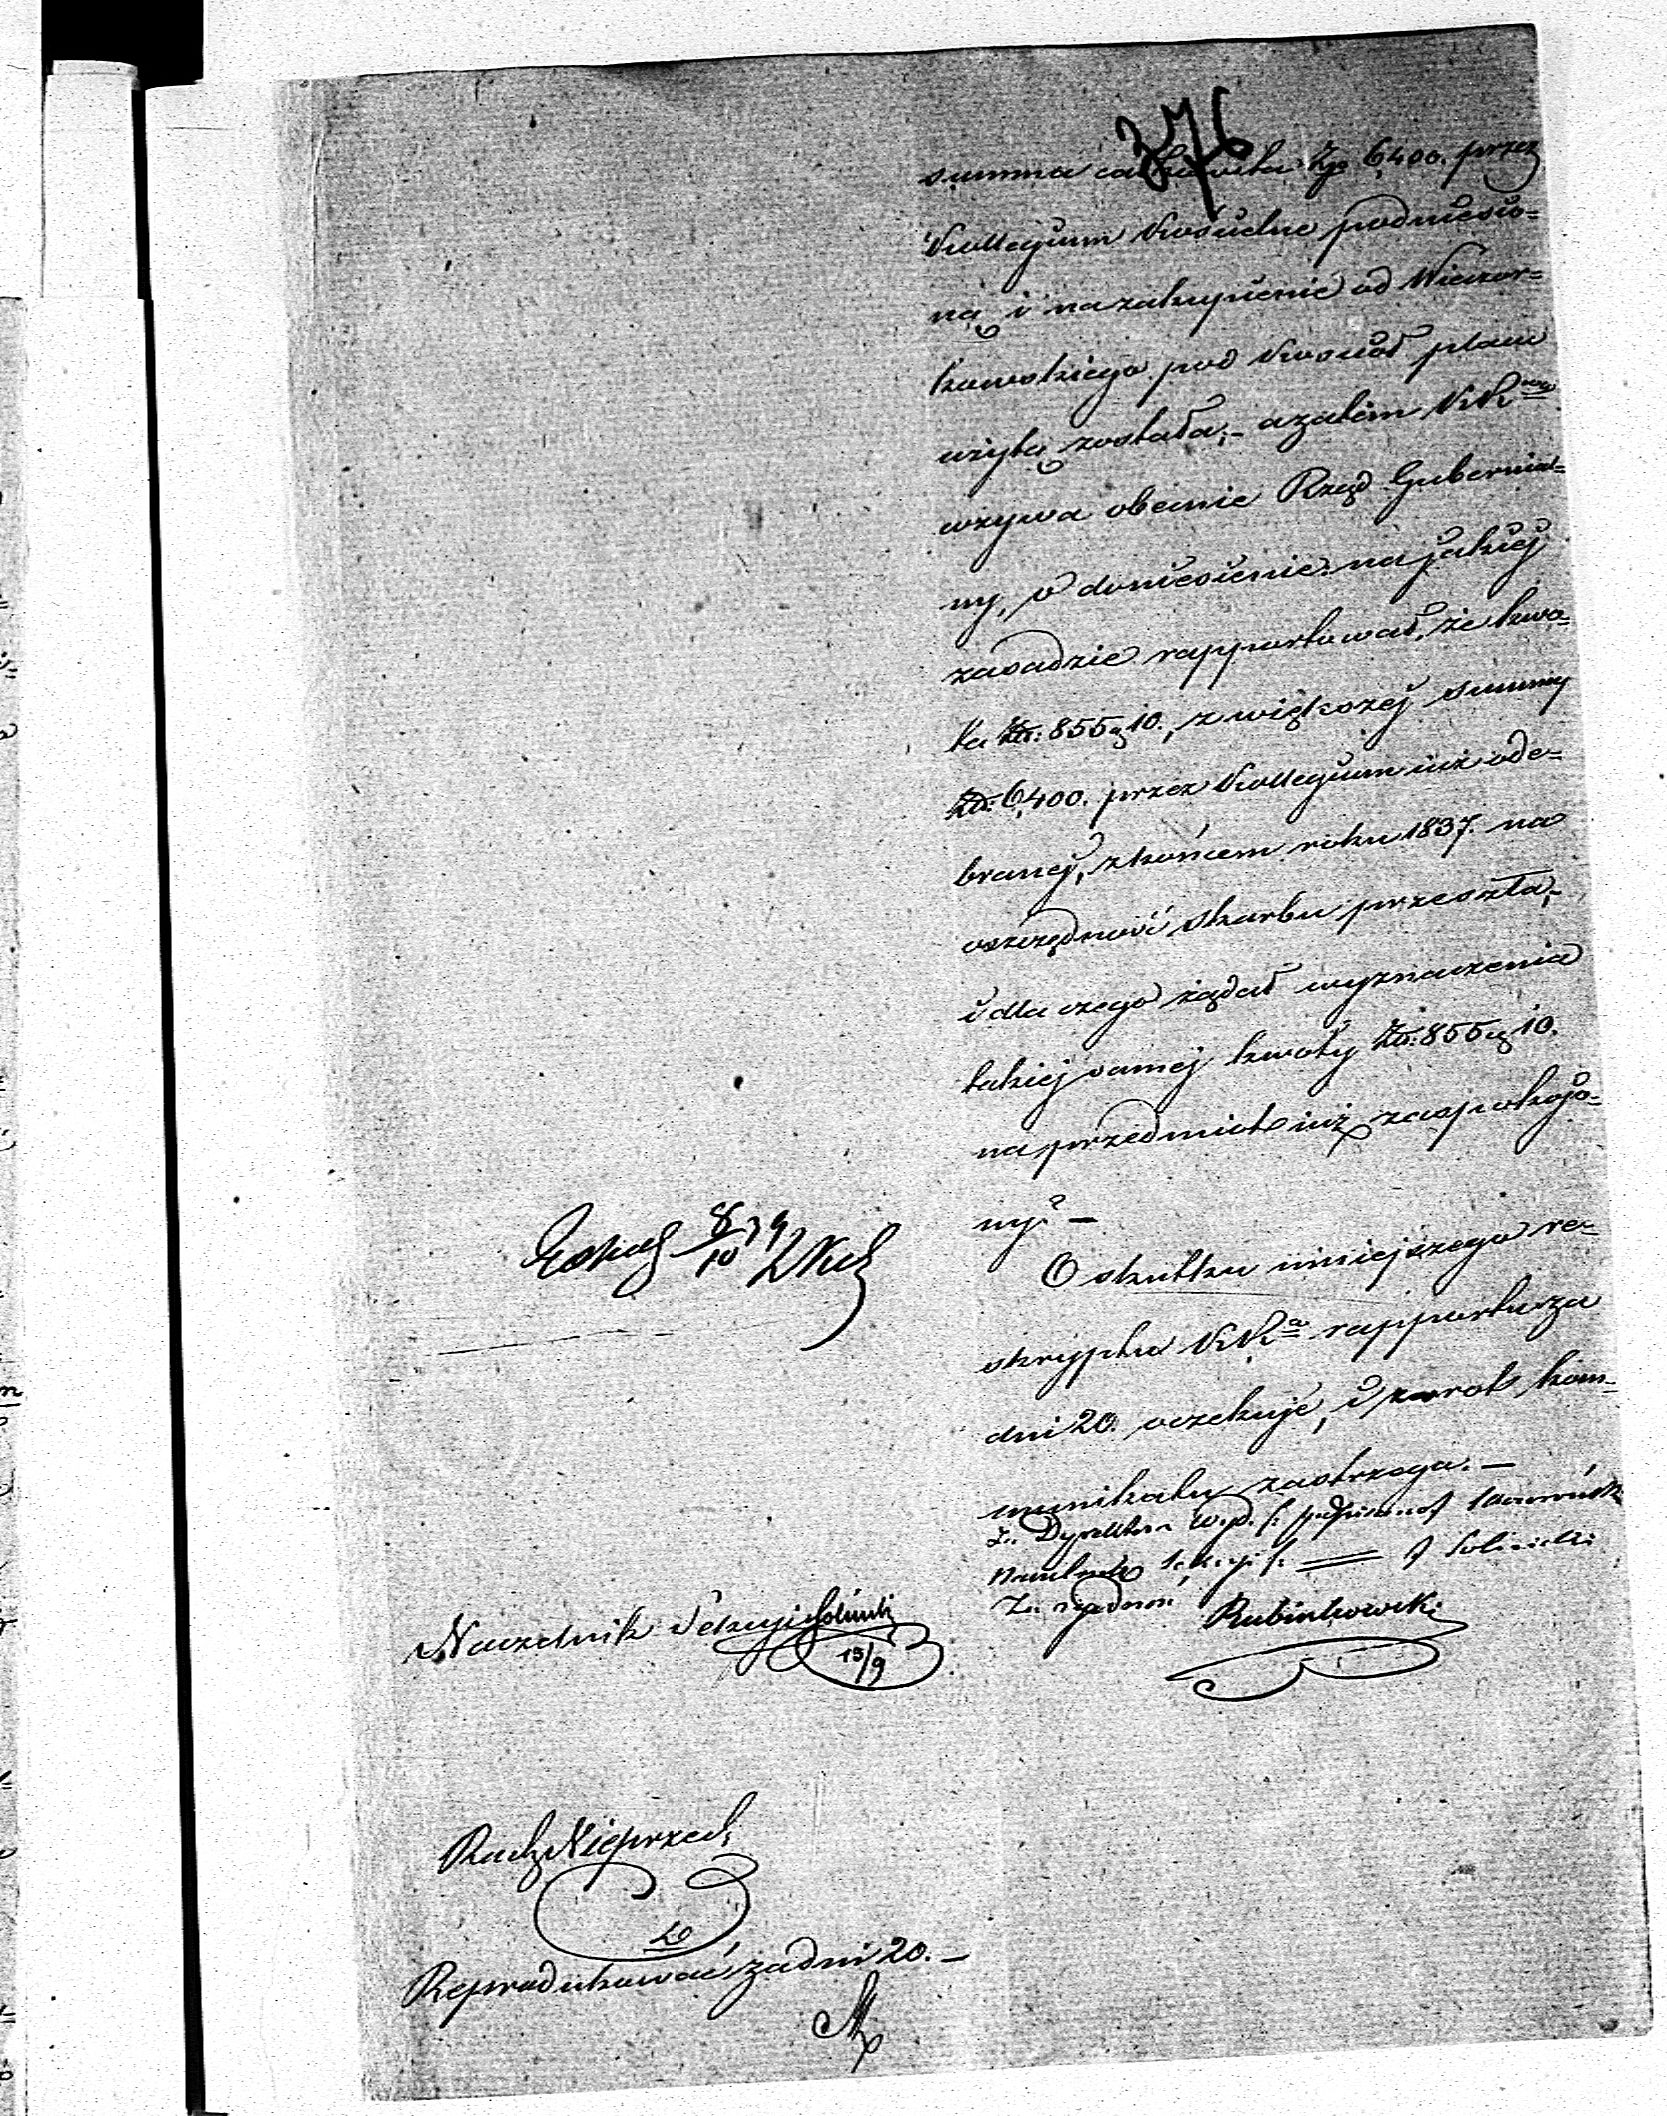 376
summa całkowita Zp 6,400. przez
Kollegium Kościelne podniesio=
ną i na zakupienie od Wieczor=
kowskiego pod Kościół placu
użytą została; – a zatém KR
wzywa obecnie Rząd Gubernial=
ny, o doniesienie: na jakiéj
zasadzie rapportował, że kwo=
ta Zł: 855 g 10., z większéj summy
Zł: 6,400. przez Kollegium już ode=
branéj, z końcem roku 1837. na
oszczędność skarbu przeszła,–
i dla czego żądał wyznaczenia
takiéj saméj kwoty Zł: 855 g 10.
na przedmiot już zaspokojo=
ny? –
O skutku niniejszego re=
skryptu KR rapportu za
dni 20. oczekuje, i zwrot kom=
munikatu zastrzega. –
Z. Dyrektora Wyd. /: podpisano /
Naczelnik Sekcyi /: ═ /
Za zgodność Rubinkowski
8/10 39
Naczelnik Sekcyi
13/9
Reprodukować za dni 20. –